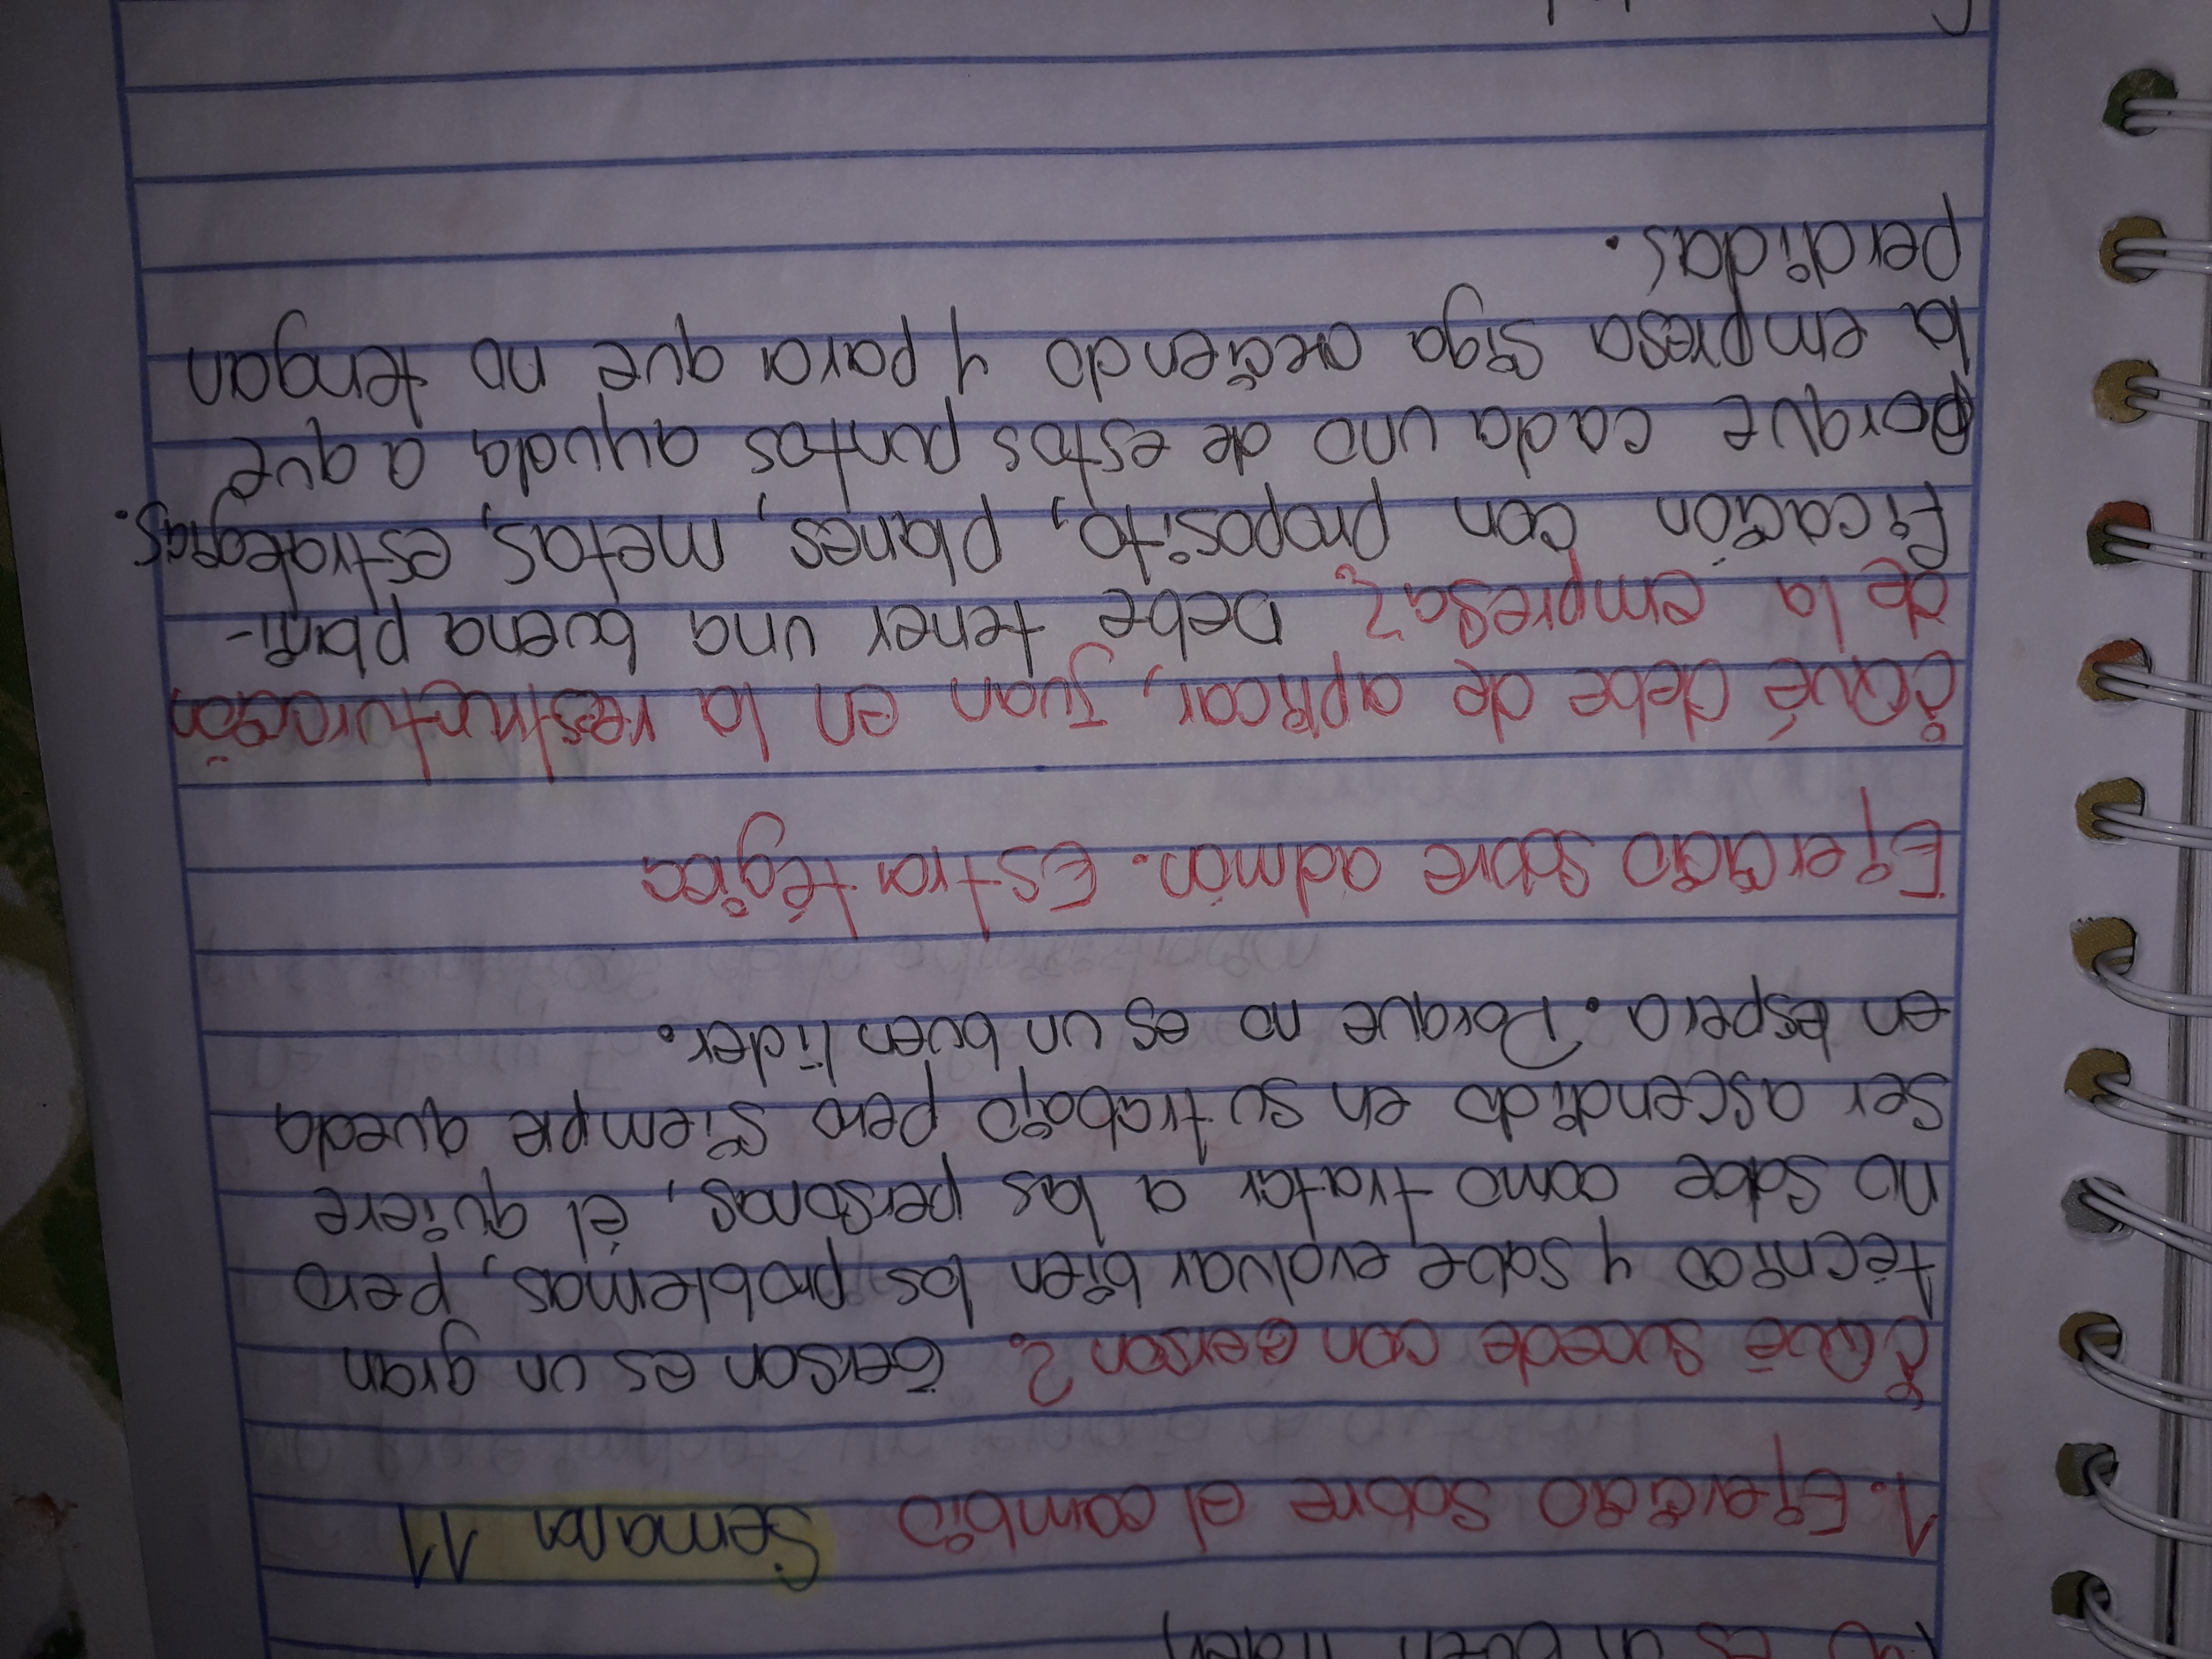 es un buen lider
1. Ejercicio sobre el cambio Semana 11
¿Qué sucede con Gerson? Gerson es un gran
técnico y sabe evaluar bien los problemas, pero
no sabe como tratar a las personas, él quiere
ser ascendido en su trabajo pero siempre queda
en espera. Porque no es un buen lider.
Ejercicio sobre admón. Estratégica
¿Qué debe de aplicar, Juan en la restructuración
de la empresa? Debe tener una buena plani-
ficación con proposito, planes, metas, estrategias.
porque cada uno de estos puntos ayuda a que
la empresa siga creciendo y para que no tengan
perdidas.